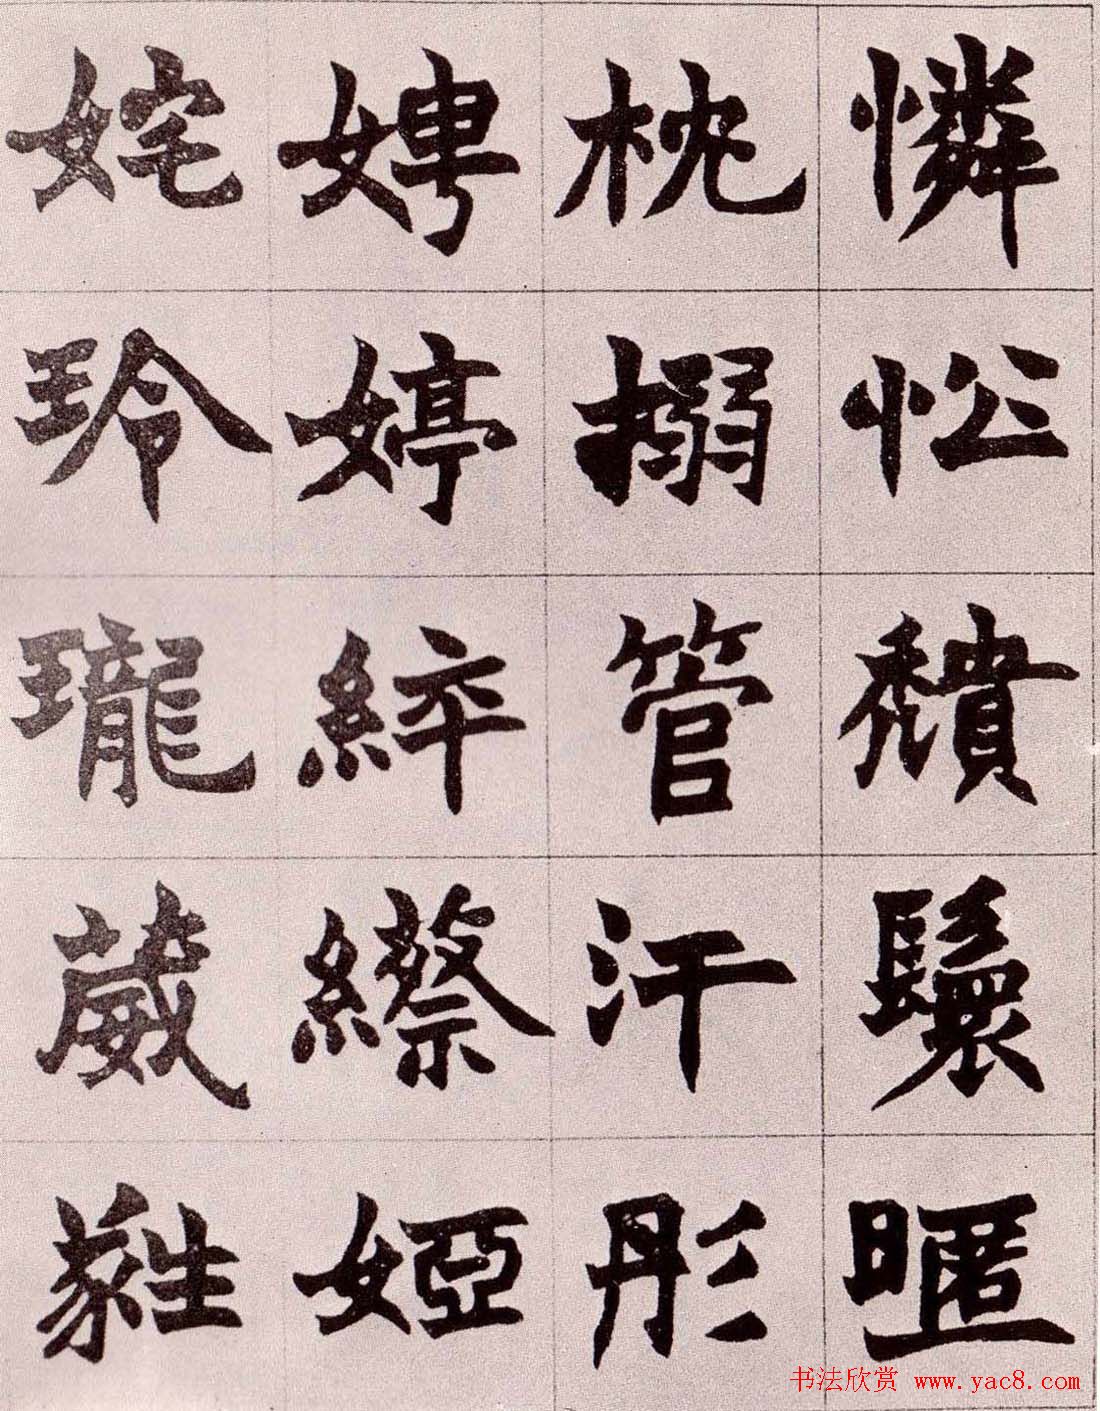 憐忪穨鬟暱
枕搦管汗彤
娉婷綷縩婭
姹玲瓏葳甤
书法欣赏 www.yac8.com